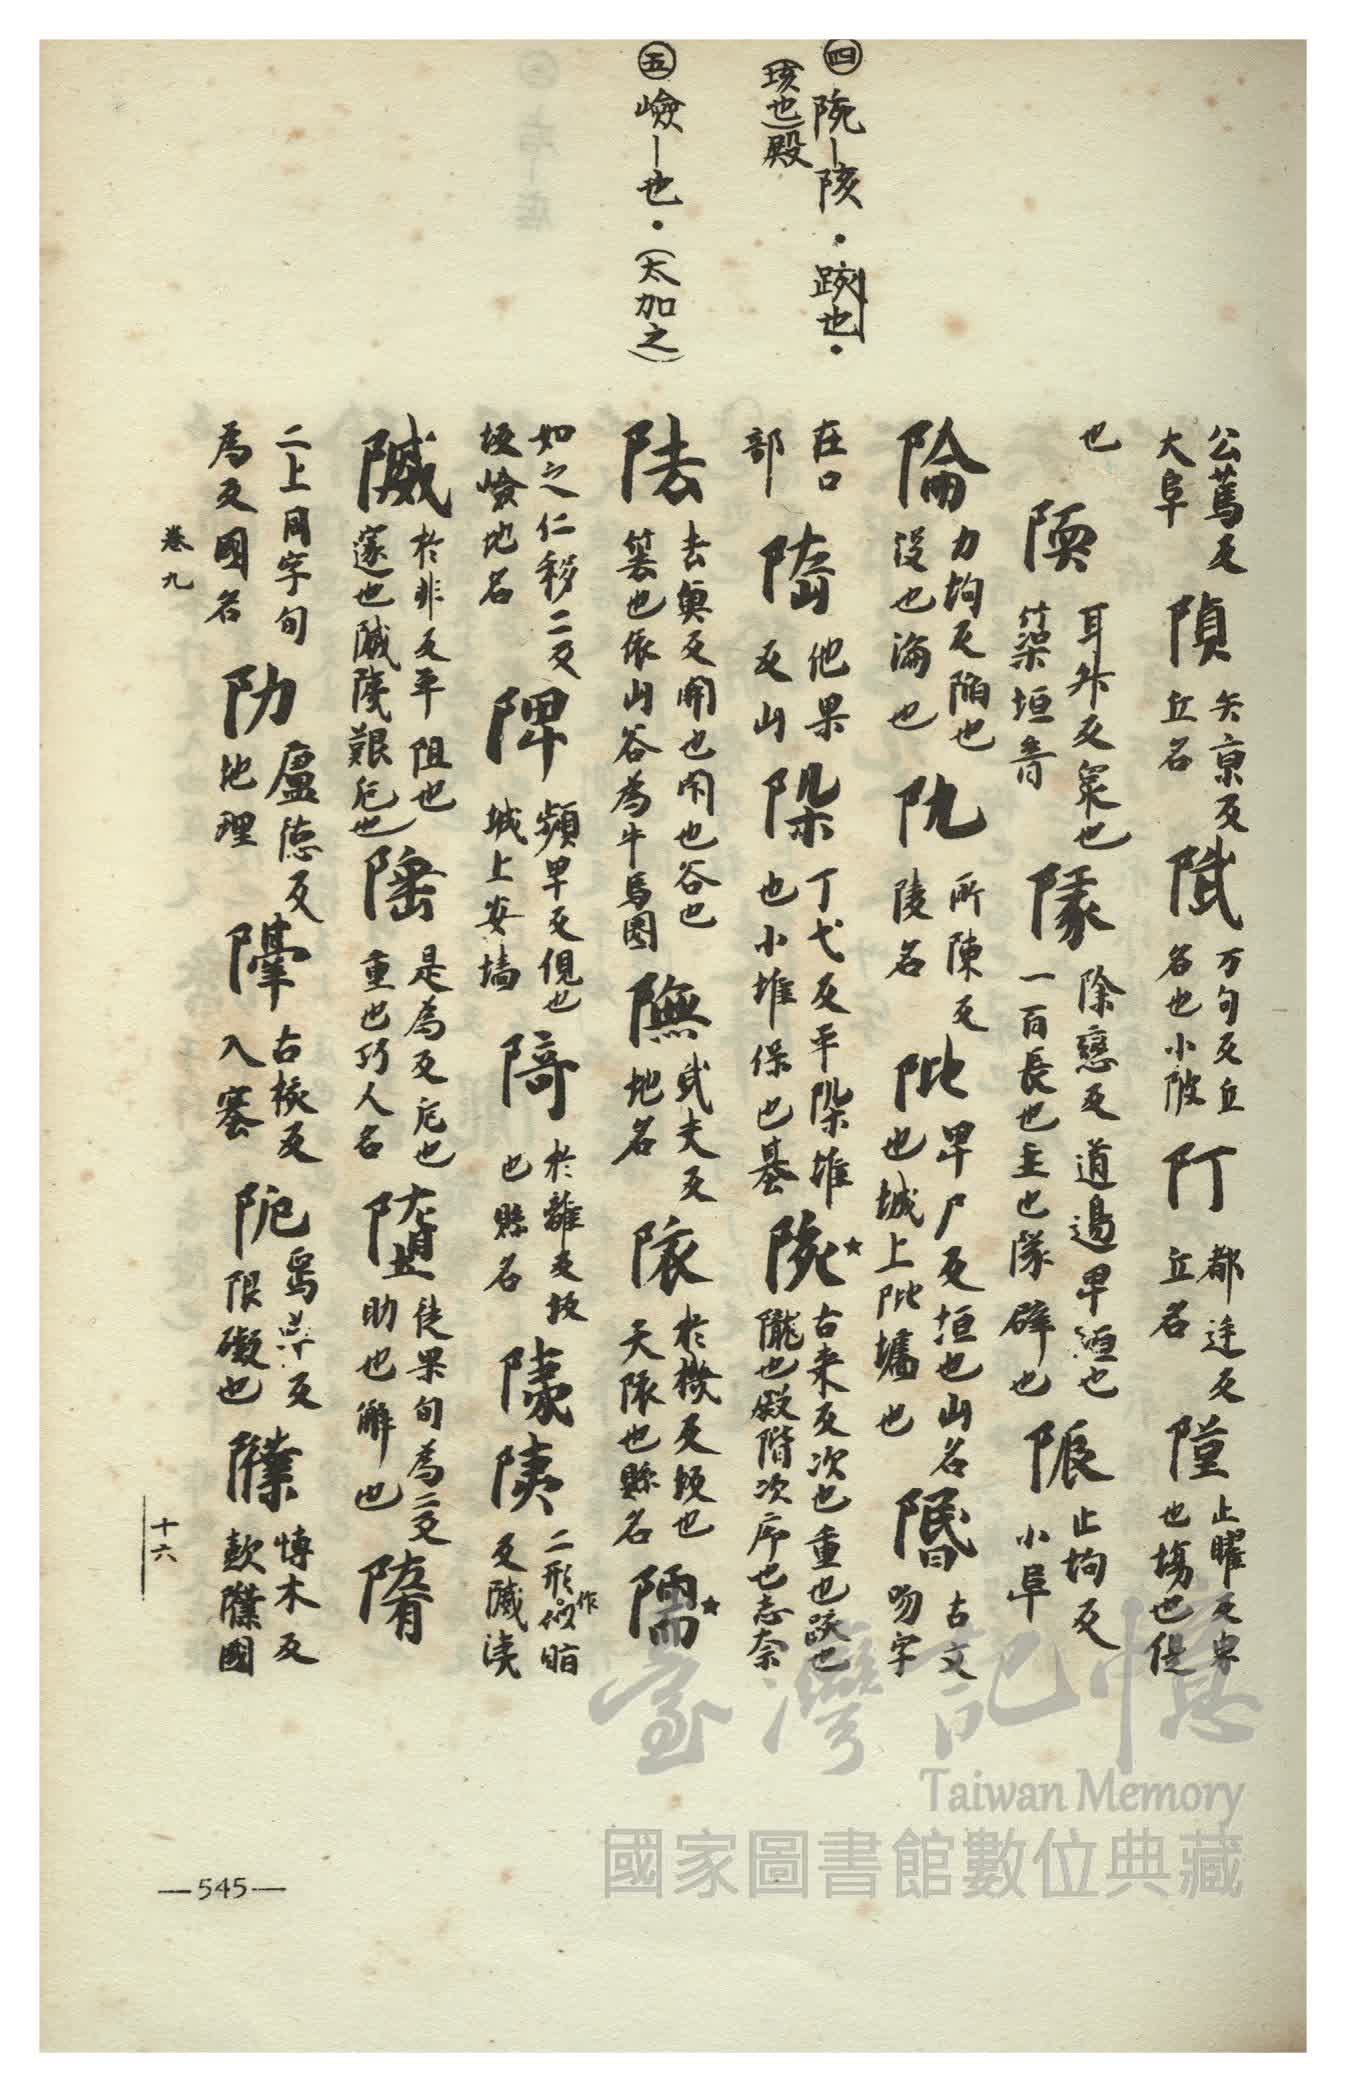 ㊃ 陖—陔・䟦也・
(垓也)殿
㊄ 嶮—也・(太加之)
公蔿反
大阜
隕
矢京反
丘名
陚
万句反丘
名也小陂
阡
都廷反
丘名
隀
止曜反
也塲也偍
也
陾
耳外反衆也
築垣音
隊
除戀反道邊卑洹也
一百長也主也隊辟也
陙
止均反
小阜
陯
力均反陷也
没也淪也
阠
所陳反
陵名
阰
卑尸反垣也山名
也城上阰墉也
㬃
古文
吻字
在口
部
嶞
他果
反山
陎
丁弋反平陎堆
也小堆保也墓
陔
古来反次也重也䟦也
隴也殿階次序也志奈
阹
去臾反開也閇也谷也
簑也依山谷為牛馬圂
隵
武夫反
地名
陭
於機反坂也
天陙也縣名
隭
如之仁移二反
坂嶮地名
陴
頻卑反俔也
城上女墻
陭
於離反坂
也縣名
隊 陝
二形作似暗
反隇渙
隇
於非反平阻也
邃也隇陖艱戹也
䧅
是為反戹也
重也巧人名
墮
徒果旬為二反
助也解也
隋
二上同字旬
為反國名
阞
廬德反
地理
隼
古核反
入塞
阸
烏草反
限礙也
隟
博木反
㱉隟國
卷九
十六
—545—
臺灣記憶
Taiwan Memory
國家圖書館數位典藏